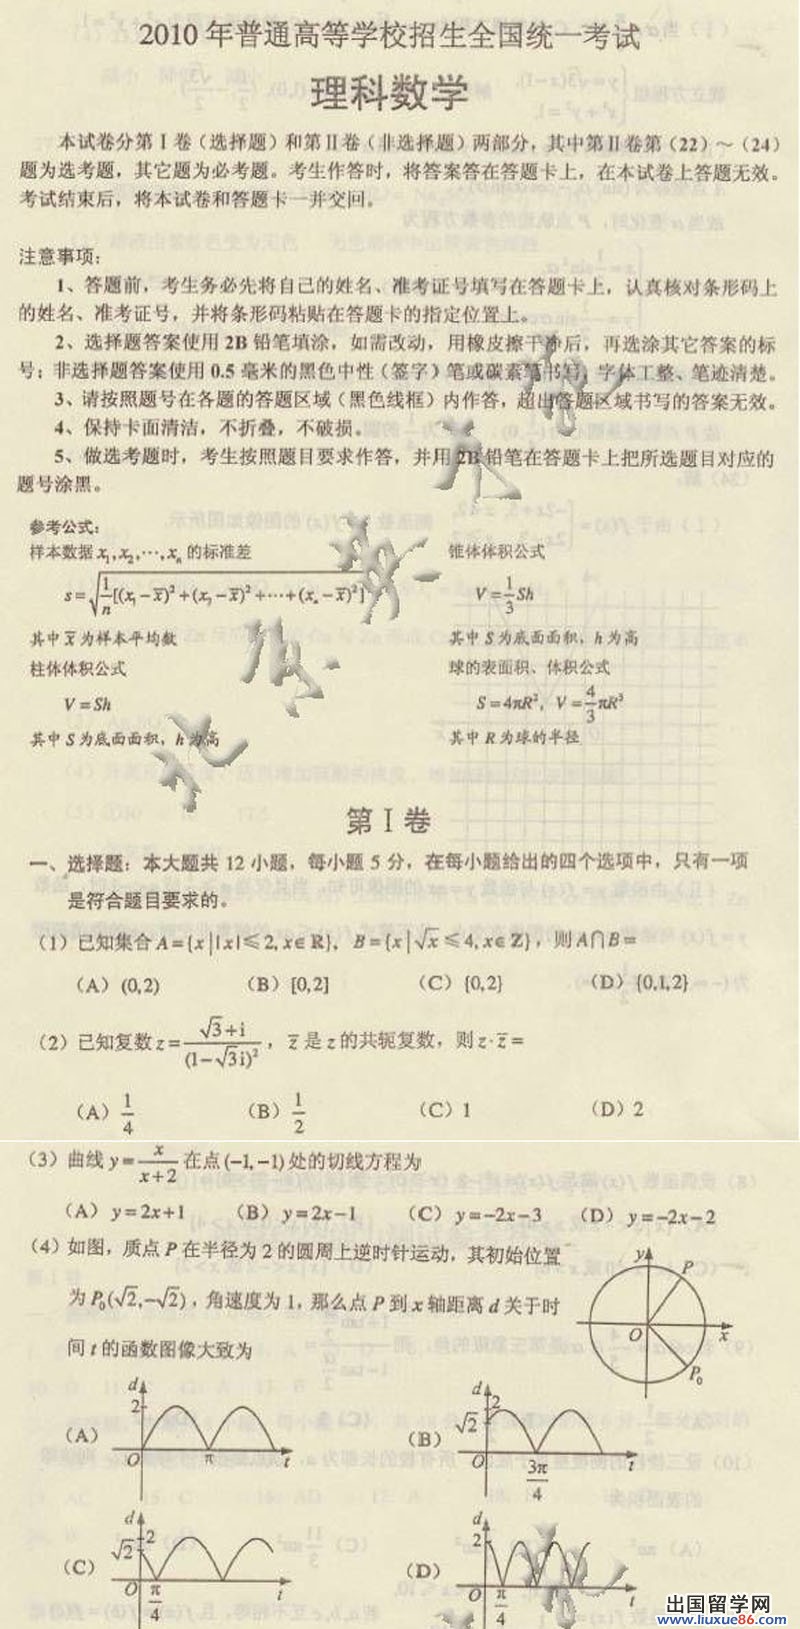 2010 年普通高等学校招生全国统一考试
理科数学
本试卷分第 I 卷（选择题）和第 II 卷（非选择题）两部分，其中第 II 卷第（22）～（24）
题为选考题，其它题为必考题。考生作答时，将答案答在答题卡上，在本试卷上答题无效。
考试结束后，将本试卷和答题卡一并交回。
注意事项：
1、答题前，考生务必先将自己的姓名、准考证号填写在答题卡上，认真核对条形码上
的姓名、准考证号，并将条形码粘贴在答题卡的指定位置上。
2、选择题答案使用 2B 铅笔填涂，如需改动，用橡皮擦干净后，再选涂其它答案的标
号；非选择题答案使用 0.5 毫米的黑色中性（签字）笔或碳素笔书写，字体工整、笔迹清楚。
3、请按照题号在各题的答题区域（黑色线框）内作答，超出答题区域书写的答案无效。
4、保持卡面清洁，不折叠，不破损。
5、做选考题时，考生按照题目要求作答，并用 2B 铅笔在答题卡上把所选题目对应的
题号涂黑。
参考公式：
样本数据 x₁,x₂,⋯,xₙ 的标准差 锥体体积公式
s=√(1/n[(x₁-x̄)²+(x₂-x̄)²+⋯+(xₙ-x̄)²]) V=1/3Sh
其中 x̄ 为样本平均数 其中 S 为底面面积，h 为高
柱体体积公式 球的表面积、体积公式
V=Sh S=4πR²，V=4/3πR³
其中 S 为底面面积，h 为高 其中 R 为球的半径
第 I 卷
一、选择题：本大题共 12 小题，每小题 5 分，在每小题给出的四个选项中，只有一项
是符合题目要求的。
（1）已知集合 A={x||x|≤2, x∈R}，B={x|√x≤4, x∈Z}，则 A∩B=
（A）(0,2) （B）[0,2] （C）{0,2} （D）{0,1,2}
（2）已知复数 z=(√3+i)/(1-√3i)²，z̄ 是 z 的共轭复数，则 z·z̄=
（A）1/4 （B）1/2 （C）1 （D）2
（3）曲线 y=x/(x+2) 在点 (-1,-1) 处的切线方程为
（A）y=2x+1 （B）y=2x-1 （C）y=-2x-3 （D）y=-2x-2
（4）如图，质点 P 在半径为 2 的圆周上逆时针运动，其初始位置
为 P₀(√2,-√2)，角速度为 1，那么点 P 到 x 轴距离 d 关于时
间 t 的函数图像大致为
y P O x P₀
（A） d 2 O π t
（B） d 2 √2 O 3π/4 t
（C） d 2 √2 O π/4 t
（D） d 2 O π/4 t
出国留学网
www.liuxue86.com